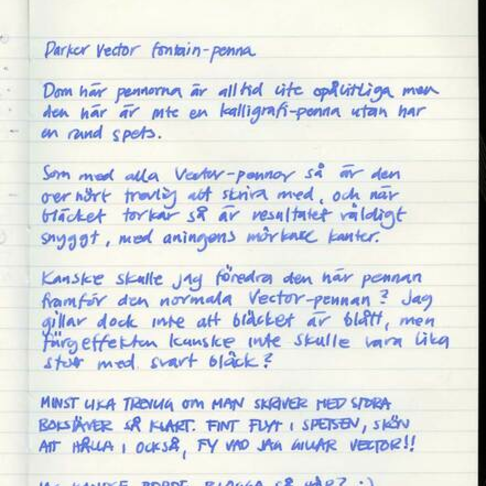 Parker Vector fontain-penna
Dom här pennorna är alltid lite opålitliga men
den här är inte en kalligrafi-penna utan har
en rund spets.
Som med alla Vector-pennor så är den
oerhört trevlig att skriva med, och när
bläcket torkar så är resultatet väldigt
snyggt, med aningens mörkare kanter.
Kanske skulle jag föredra den här pennan
framför den normala Vector-pennan? Jag
gillar dock inte att bläcket är blått, men
färgeffekten kanske inte skulle vara lika
stor med svart bläck?
MINST LIKA TREVLIG OM MAN SKRIVER MED STORA
BOKSTÄVER SÅ KLART. FINT FLYT I SPETSEN, SKÖN
ATT HÅLLA I OCKSÅ, FY VAD JAG GILLAR VECTOR!!
JAG KANSKE BORDE BLAGGA SÅ HÄR? :)